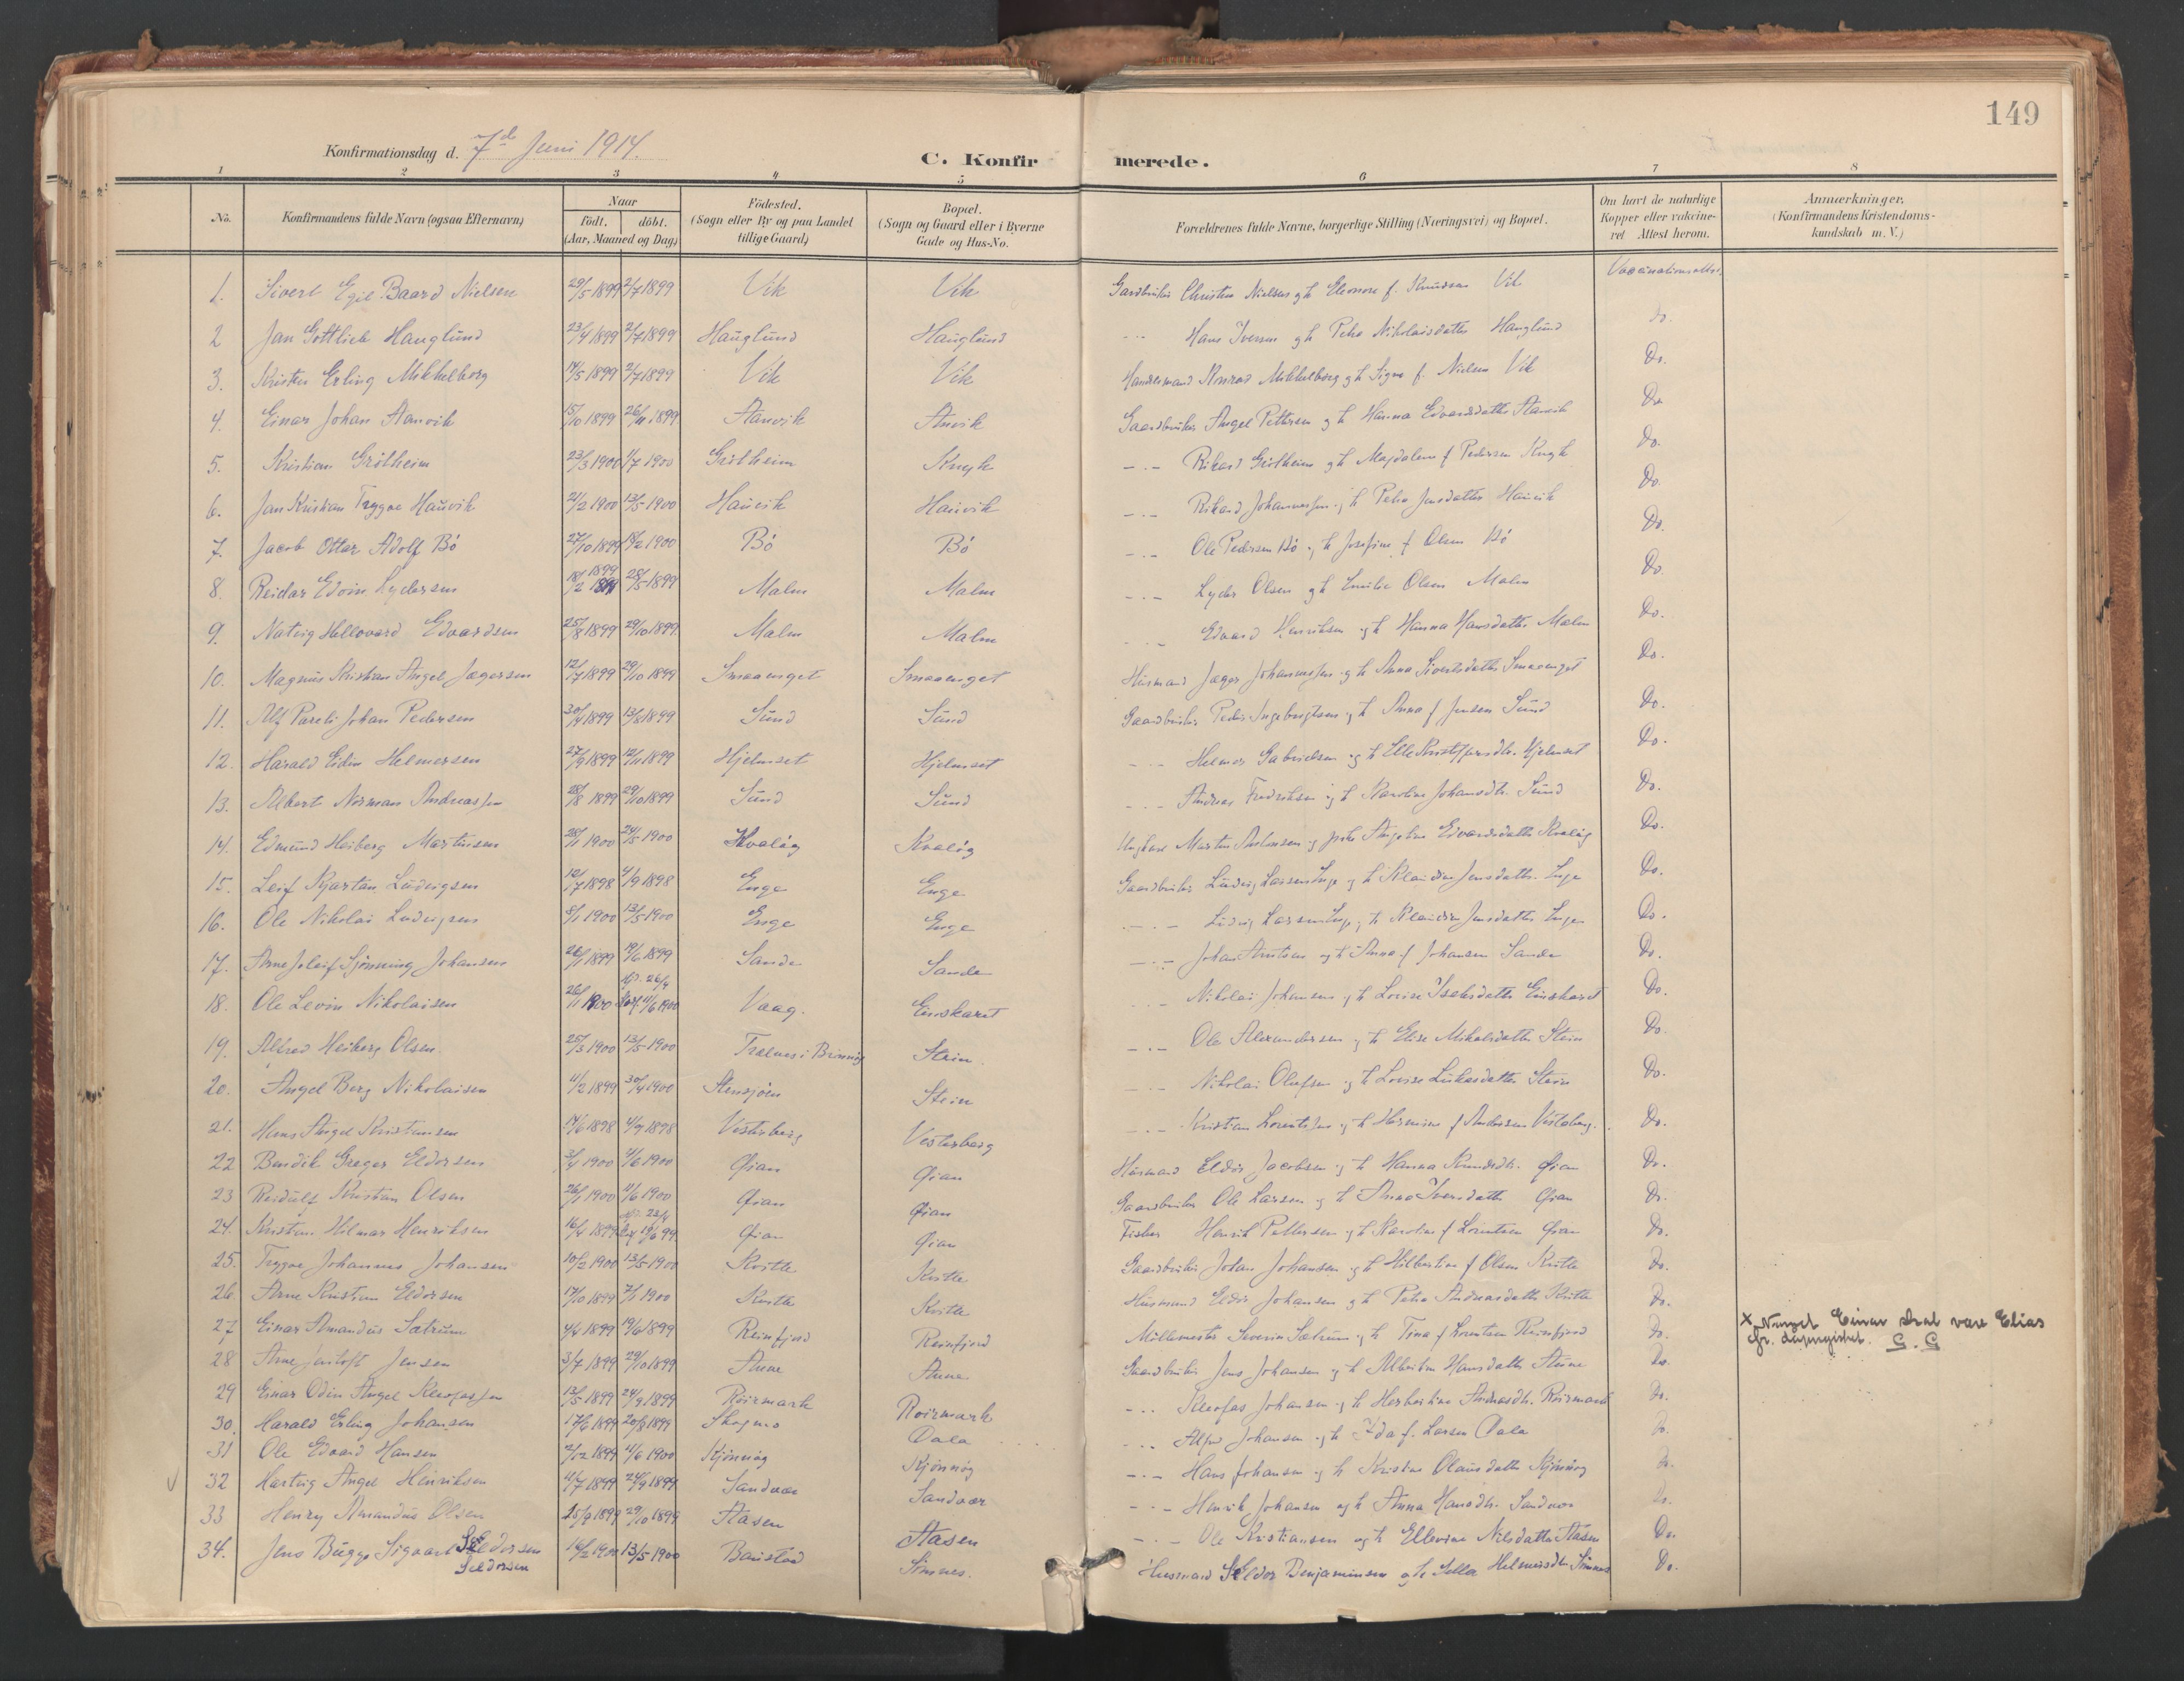 149
Konfirmationsdag d. 7de Juni 1914.
C. Konfirmerede.
1 2 3 4 5 6 7 8
No. Konfirmandens fulde Navn (ogsaa Efternavn) Naar födt. döbt. (Aar, Maaned og Dag) Födested. (Sogn eller By og paa Landet tillige Gaard) Bopæl. (Sogn og Gaard eller i Byerne Gade og Hus-No. Forældrenes fulde Navne, borgerlige Stilling (Næringsvei) og Bopæl. Om havt de naturlige Kopper eller vakcineret Attest herom. Anmærkninger. (Konfirmandens Kristendomskundskab m. V.)
1. Sivert Egil Baard Nielsen 29/5 1899 2/7 1899 Vik Vik Gaardbruker Christen Nielsen og h Eleonore f. Knudsen Vik Vaccinationsattest.
2 Jan Gottlieb Hauglund 23/4 1899 2/7 1899 Hauglund Hauglund Hans Iversen og h Petra Nikolaisdatter Hauglund do.
3. Kristen Erling Mikkelborg 14/5 1899 2/7 1899 Vik Vik Handelsmand Konrad Mikkelborg og h Signe f. Nielsen Vik Do.
4. Einar Johan Aanvik 15/10 1899 26/11 1899 Aanvik Anvik Gaardbruker Angel Pettersen og h Hanna Edvardsdatter Aanvik Do
5. Kristian Grötheim 23/3 1900 1/7 1900 Grötheim Rikard Grötheim og h Magdalene f Pedersen Do.
6. Jan Kristian Trygve Hauvik 21/2 1900 13/5 1900 Hauvik Hauvik Rikard Johannessen og h Petra Jensdatter Hauvik Do.
7. Jacob Ottar Adolf Bö 27/10 1899 18/2 1900 Bö Bö Ole Pedersen Bö og h Josefine f Olsen Bö Do.
8. Reidar Edvin Lydersen 18/2 1899 28/5 1899 Malm Malm Lyder Olsen og h Emilie Olsen Malm Do.
9. Natvig Hallovard Edvardsen 25/8 1899 29/10 1899 Malm Malm Edvard Henriksen og h Hanna Hansdatter Malm Do.
10. Magnus Kristian Angel Jægersen 12/7 1899 29/10 1899 Smaaenget Smaaenget Husmand Jæger Johannessen og h Anna Sivertsdatter Smaaenget Do.
11. Alf Pareli Johan Pedersen 30/4 1899 13/8 1899 Sund Sund Gaardbruker Peder Ingebrigtsen og h Anna f Jensen Sund Do.
12. Harald Eidin Helmersen 27/9 1899 12/11 1899 Hjelmset Hjelmset Helmer Gabrielsen og h Elle Kristofersdtr. Hjelmset Do.
13. Albert Norman Andreassen 28/8 1899 29/10 1899 Sund Sund Andreas Fredriksen og h Karoline Johansdtr. Sund Do.
14. Edmund Heiberg Martinsen 28/1 1900 24/5 1900 Kvalöy Kvalöy Ungkarl Martin Antonsen og pike Angeline Edvardsdatter Kvalöy Do.
15. Leif Kjartan Ludvigsen 12/7 1898 4/9 1898 Enge Enge Gaardbruker Ludvig Larsen Enge og h Klaudine Jensdatter Enge Do.
16. Ole Nikolai Ludvigsen 8/1 1900 13/5 1900 Enge Enge Ludvig Larsen Enge og h Klaudine Jensdatter Enge Do.
17. Arne Joleif Sjönning Johansen 26/1 1899 19/6 1899 Sande Sande Johan Arntsen og h Anna f Johansen Sande Do.
18. Ole Levin Nikolaisen 26/1 1900 26/4 11/6 1900 Vaag. Einskaret Nikolai Johansen og h Lovise Isaksdatter Einskaret Do.
19. Alfred Heiberg Olsen 25/3 1900 13/5 1900 Trælnes i Brönnöy Stein Ole Alexandersen og h Elise Mikalsdatter Stein Do.
20. Angel Berg Nikolaisen 4/2 1899 30/4 1900 Stensjöen Stein Nikolai Olufsen og h Lovise Lukasdatter Stein Do.
21. Hans Angel Kristiansen 14/6 1898 4/9 1898 Vesterberg Vesterberg Kristian Lorentsen og h Hermine f Andersen Vesterberg. Do.
22 Bendik Greger Eldorsen 3/4 1900 4/6 1900 Öian Öian Husmand Eldor Jacobsen og h Hanna Knudsdtr. Öian Do.
23 Reidulf Kristian Olsen 26/1 1900 11/6 1900 Öian Öian Gaardbruker Ole Larsen og h Anna Iversdatter Öian Do.
24. Kristian Hilmar Henriksen 16/4 1899 23/4 19/6 99 Öian Öian Fisker Henrik Pettersen og h Karoline f Lorentsen Öian Do.
25. Trygve Johannes Johansen 10/2 1900 13/5 1900 Kvitle Kvitle Gaardbruker Johan Johansen og h Hilbertine f Olsen Kvitle Do.
26. Arne Kristian Eldorsen 17/10 1899 7/1 1900 Kvitle Kvitle Husmand Eldor Johansen og h Petra Andreasdatter Kvitle Do.
27 Einar Amandus Sætrum 4/4 1899 19/6 1899 Reinfjord Reinfjord Möllemester Severin Sætrum og h Tina f Lorentsen Reinfjord Do. x Navnet Einar skal være Elias
cfr. S. S
28 Arne Jentoft Jensen 3/7 1899 29/10 1899 Aune Aune Gaardbruker Jens Johansen og h Albertine Hansdatter Aune Do.
29 Einar Odin Angel Kleofassen 13/5 1899 24/9 1899 Röirmark Roirmark Kleofas Johansen og h Herbertine Andreasdtr. Röirmark Do.
30. Harald Erling Johansen 17/6 1899 20/8 1899 Skogmo Dala Alfred Johansen og h Ida f. Larsen Dala Do.
31 Ole Edvard Hansen 2/12 1899 11/6 1900 Kjönnöy Kjönnöy Hans Johansen og h Kristine Olausdatter Kjönnöy Do.
32 Hartvig Angel Henriksen 4/7 1899 24/9 1899 Sandvær Sandvær Henrik Johansen og h Anna Hansdtr. Sandvær Do.
33 Henry Amandus Olsen 15/9 1899 29/10 1899 Aasen Aasen Ole Kristiansen og h Ellevine Nilsdatter Aasen Do.
34. Jens Bugge Sigvart Seldorsen 16/2 1900 13/5 1900 Barstad Simnes. Husmand Seldor Benjaminsen og h Sella Helmersdtr. Simnes Do.
Seldorsen